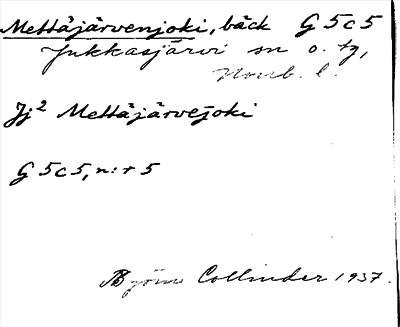 Mettäjärvenjoki, bäck G5c5
Jukkasjärvi sn o. tg,
Norrb. l.
Jj² Mettäjärvejoki
G5c5, n:r 5
Björn Collinder 1937.